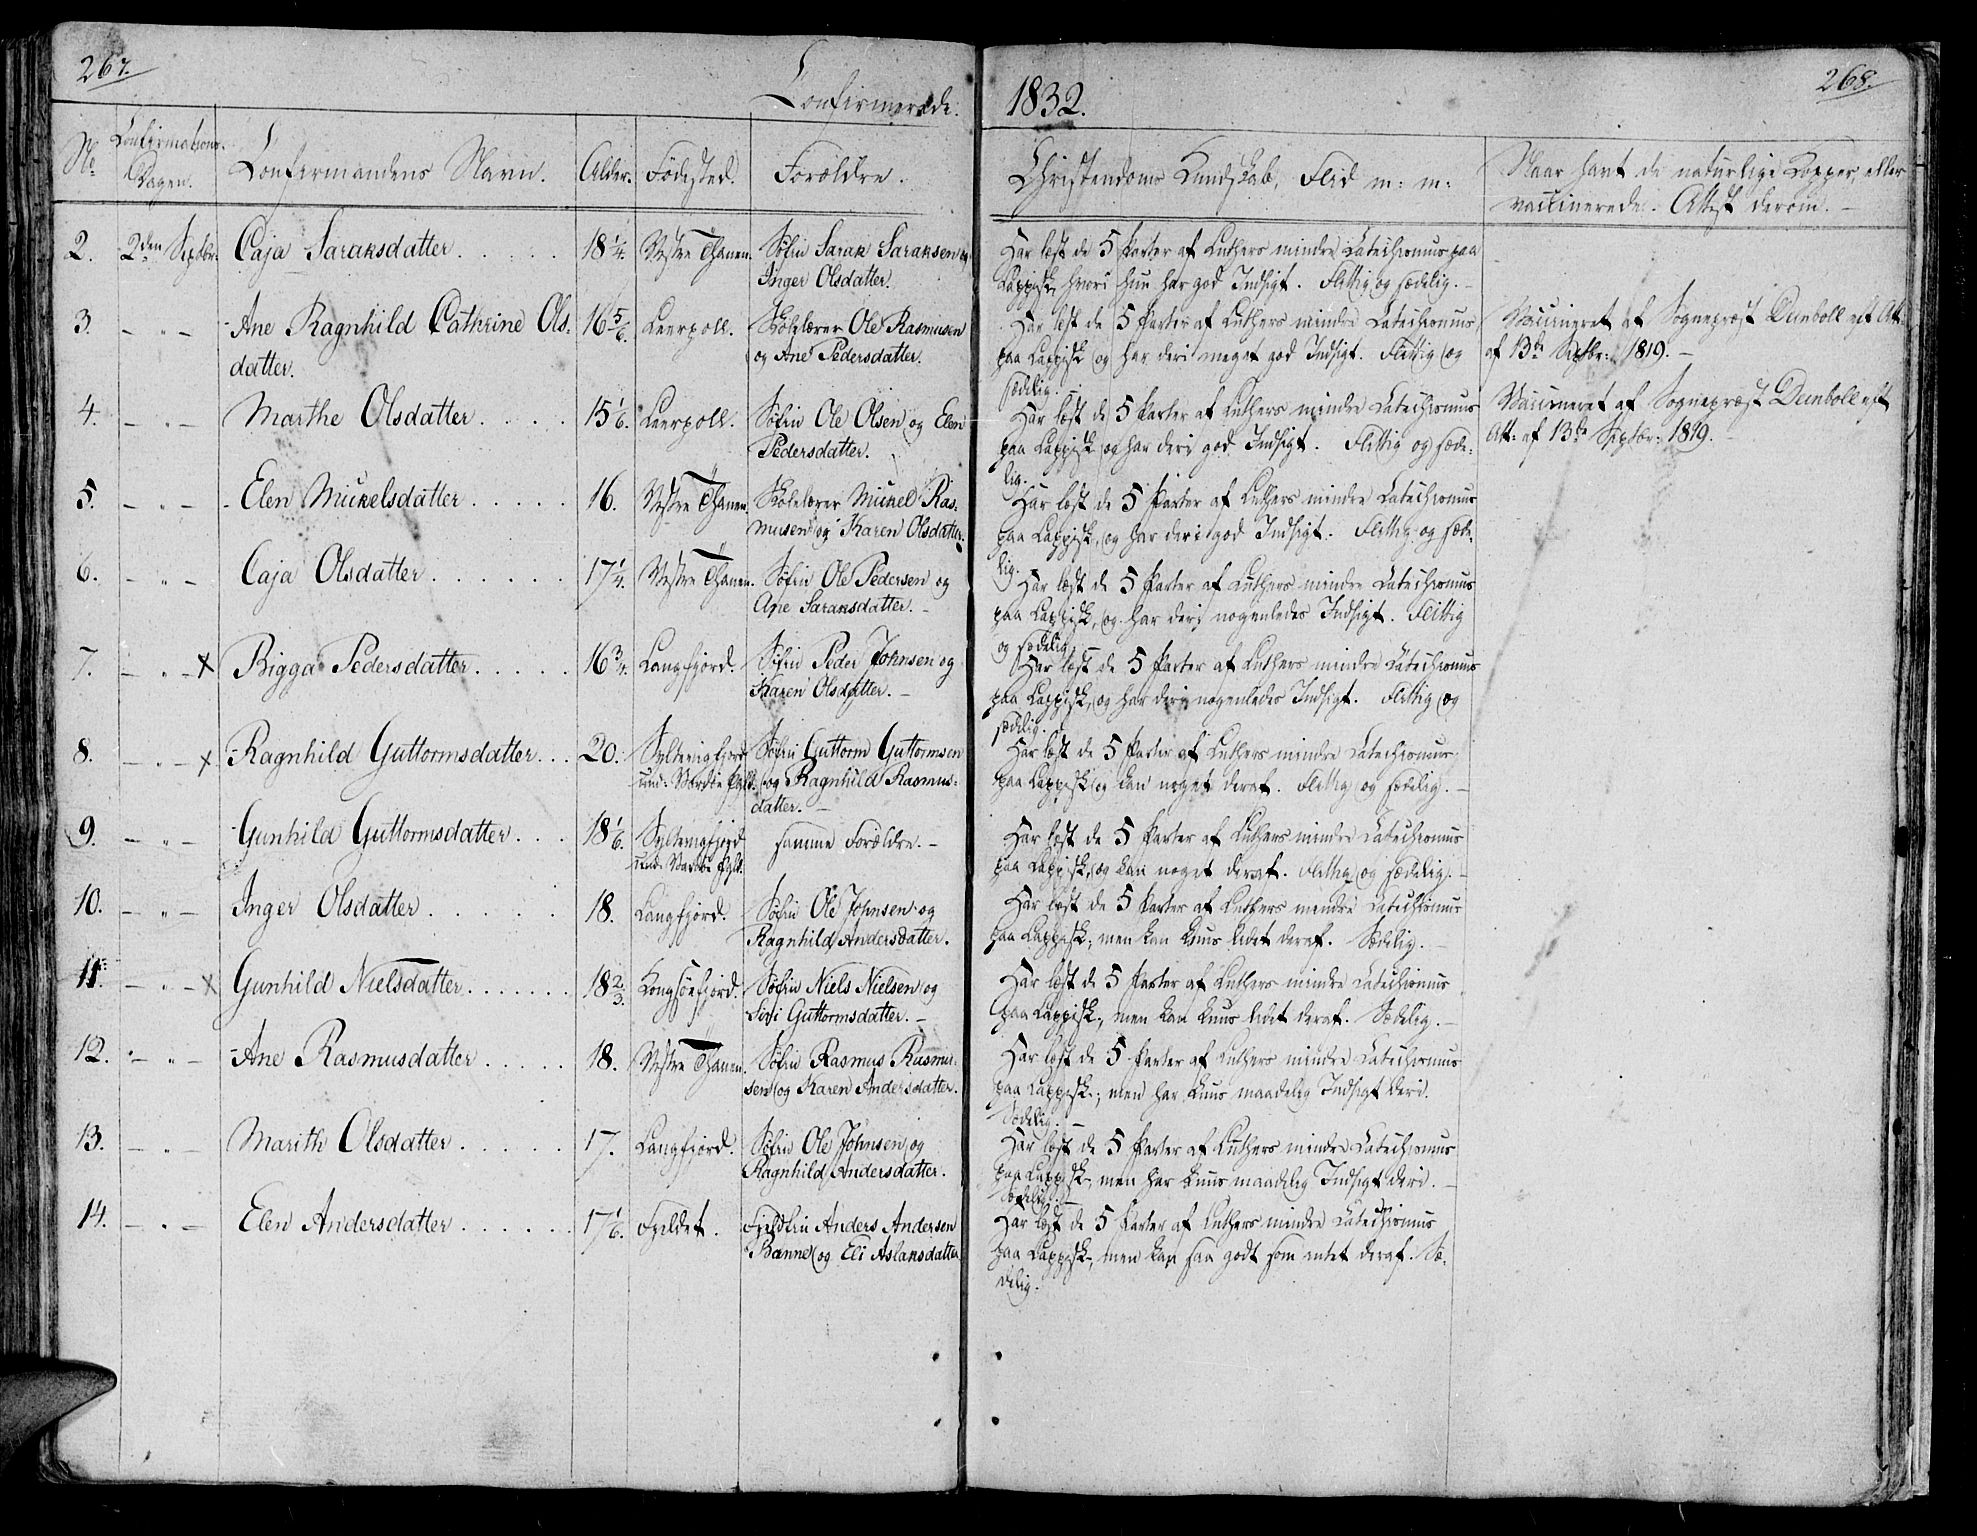 267.
Confirmerede
1832.
268.
No
Confirmations Dagen.
Confirmandens Navn.
Alder.
Fødested.
Forældre.
Christendoms Kundskab, Flid m: m:
Naar havt de naturlige Kopper, eller
vaccinerede. Attest derom. –
2. 2den Septbr: Caja Saraksdatter 18 1/4. Vestre Thanen. Søfin Sarak Saraksen og
Inger Olsdatter.
Har læst de 5 Parter af Luthers mindre Catechismus paa
Lappisk, hvori hun har god Indsigt. Flittig og sædelig. –
3. – " – Ane Ragnhild Cathrine Ols-
datter.
16 5/6. Leerpoll. Skolelærer Ole Rasmusen
og Ane Pedersdatter.
Har læst de 5 Parter af Luthers mindre Catechismus
paa Lappisk og har deri meget god Indsigt. Flittig og
sædelig.
Vaccineret af Sogneprest Deinboll eft Att:
af 13de Septbr: 1819. –
4. – " – Marthe Olsdatter. 15 1/6. Leerpoll. Søfin Ole Olsen og Elen
Pedersdatter.
Har læst de 5 Parter af Luthers mindre Catechismus
paa Lappisk og har deri god Indsigt. Flittig og sæde-
lig.
Vaccineret af Sogneprest Deinboll eft
Att: af 13de Septbr: 1819.
5. – " – Elen Mickelsdatter 16. Vestre Thanen. Skolelærer Mickel Ras-
musen og Karen Olsdatter.
Har læst de 5 Parter af Luthers mindre Catechismus
paa Lappisk, og har deri god Indsigt. Flittig og sæde-
lig.
6. – " – Caja Olsdatter. 17 1/4. Vestre Thanen. Søfin Ole Pedersen og
Ane Saraksdatter. –
Har læst de 5 Parter af Luthers mindre Catechismus
paa Lappisk, og har deri nogenledes Indsigt. Flittig
og sædelig.
7. – " – x Bigga Pedersdatter. 16 3/4. Langfjord. Søfin Peder Johnsen og
Karen Olsdatter. –
Har læst de 5 Parter af Luthers mindre Catechismus
paa Lappisk, og har deri nogenledes Indsigt. Flittig og
sædelig.
8. – " – x Ragnhild Guttormsdatter. 20. Syltevigfjord
und: Vardøe Pgld.
Søfin Guttorm Guttormsen
og Ragnhild Rasmus-
datter. –
Har læst de 5 Parter af Luthers mindre Catechismus
paa Lappisk og kan noget deraf. Flittig og sædelig. –
9. – " – Gunhild Guttormsdatter. 18 1/6. Syltevigfjord
und: Vardøe Pgld.
samme Forældre. –
Har læst de 5 Parter af Luthers mindre Catechismus
paa Lappisk, og kan noget deraf. Flittig og sædelig. –
10. – " – Inger Olsdatter. 18. Langfjord. Søfin Ole Johnsen og
Ragnhild Andersdatter.
Har læst de 5 Parter af Luthers mindre Catechismus
paa Lappisk, men kan kuns lidet deraf. Sædelig. –
11. – " – x Gunhild Nielsdatter. 18 2/3. Kongsøefjord. Søfin Niels Nielsen og
Siri Guttormsdatter. –
Har læst de 5 Parter af Luthers mindre Catechismus
paa Lappisk, men kan kuns lidet deraf. Sædelig. –
12. – " – Ane Rasmusdatter 18. Vestre Thanen. Søfin Rasmus Rasmu-
sen og Karen Andersdatter.
Har læst de 5 Parter af Luthers mindre Catechismus
paa Lappisk; men har kuns maadelig Indsigt deri.
Sædelig. –
13. – " – Marith Olsdatter. 17. Langfjord. Søfin Ole Johnsen og
Ragnhild Andersdatter.
Har læst de 5 Parter af Luthers mindre Catechismus
paa Lappisk, men har kuns maadelig Indsigt deri. –
Sædelig. –
14. – " – Elen Andersdatter 17 1/6. Fjeldet. Fjeldfin Anders Andersen
Banne og Eli Aslaksdatter
Har læst de 5 Parter af Luthers mindre Catechismus
paa Lappisk, men kan saa godt som intet deraf. Sæ-
delig.